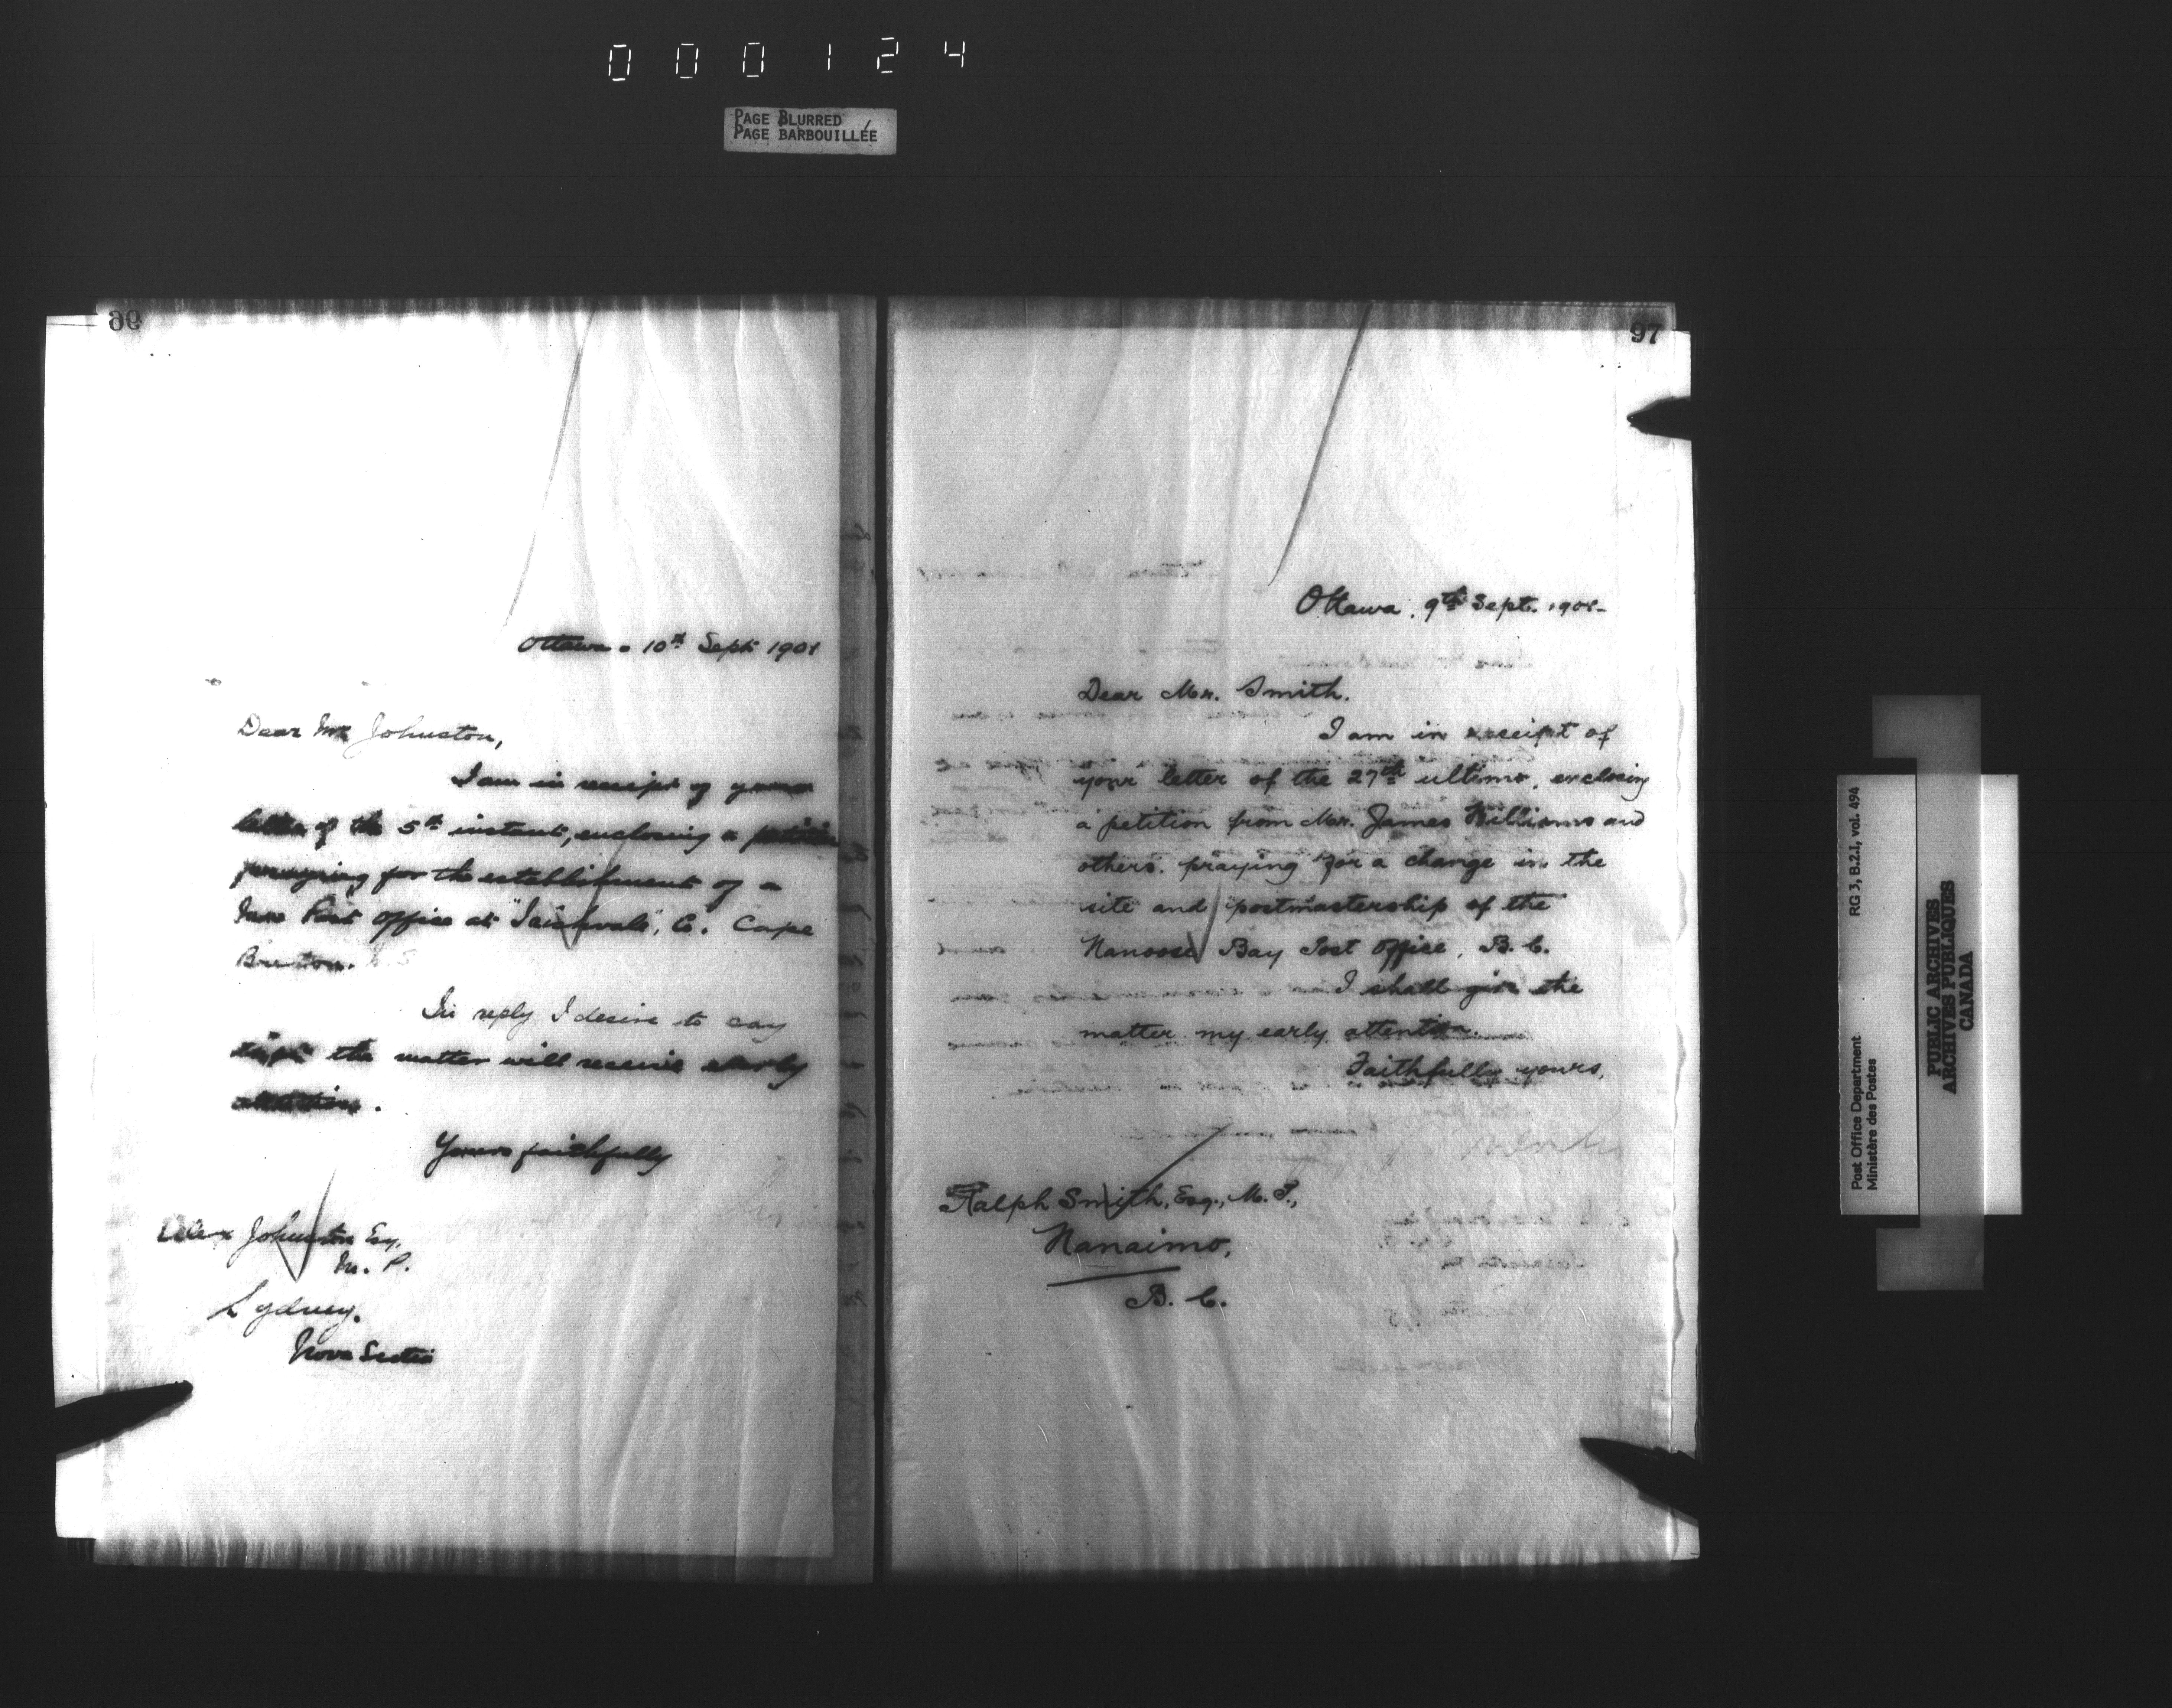 000124
PAGE BLURRED
PAGE BARBOUILLÉE
96
Ottawa. 10th Sept 1901
Dear Mr Johnston,
I am in receipt of your
letter of the 5th instant, enclosing a petition
praying for the establishment of a
new Post Office at " ", C. Cape
Breton. N.S
In reply I desire to say
that the matter will receive early
attention.
Yours faithfully
Alex Johnston Esq,
M. P.
Sydney.
Nova Scotia
97
Ottawa, 9th Sept. 1901-
Dear Mr. Smith.
I am in receipt of
your letter of the 27th ultimo, enclosing
a petition from Mr. James Williams and
others, praying for a change in the
site and postmastership of the
Nanoose Bay Post Office, B. C.
I shall give the
matter my early attention.
Faithfully yours,
Ralph Smith, Esq., M. P.,
Nanaimo,
B. C.
Post Office Department
Ministère des Postes
RG 3, B.2.I, vol. 494
PUBLIC ARCHIVES
ARCHIVES PUBLIQUES
CANADA